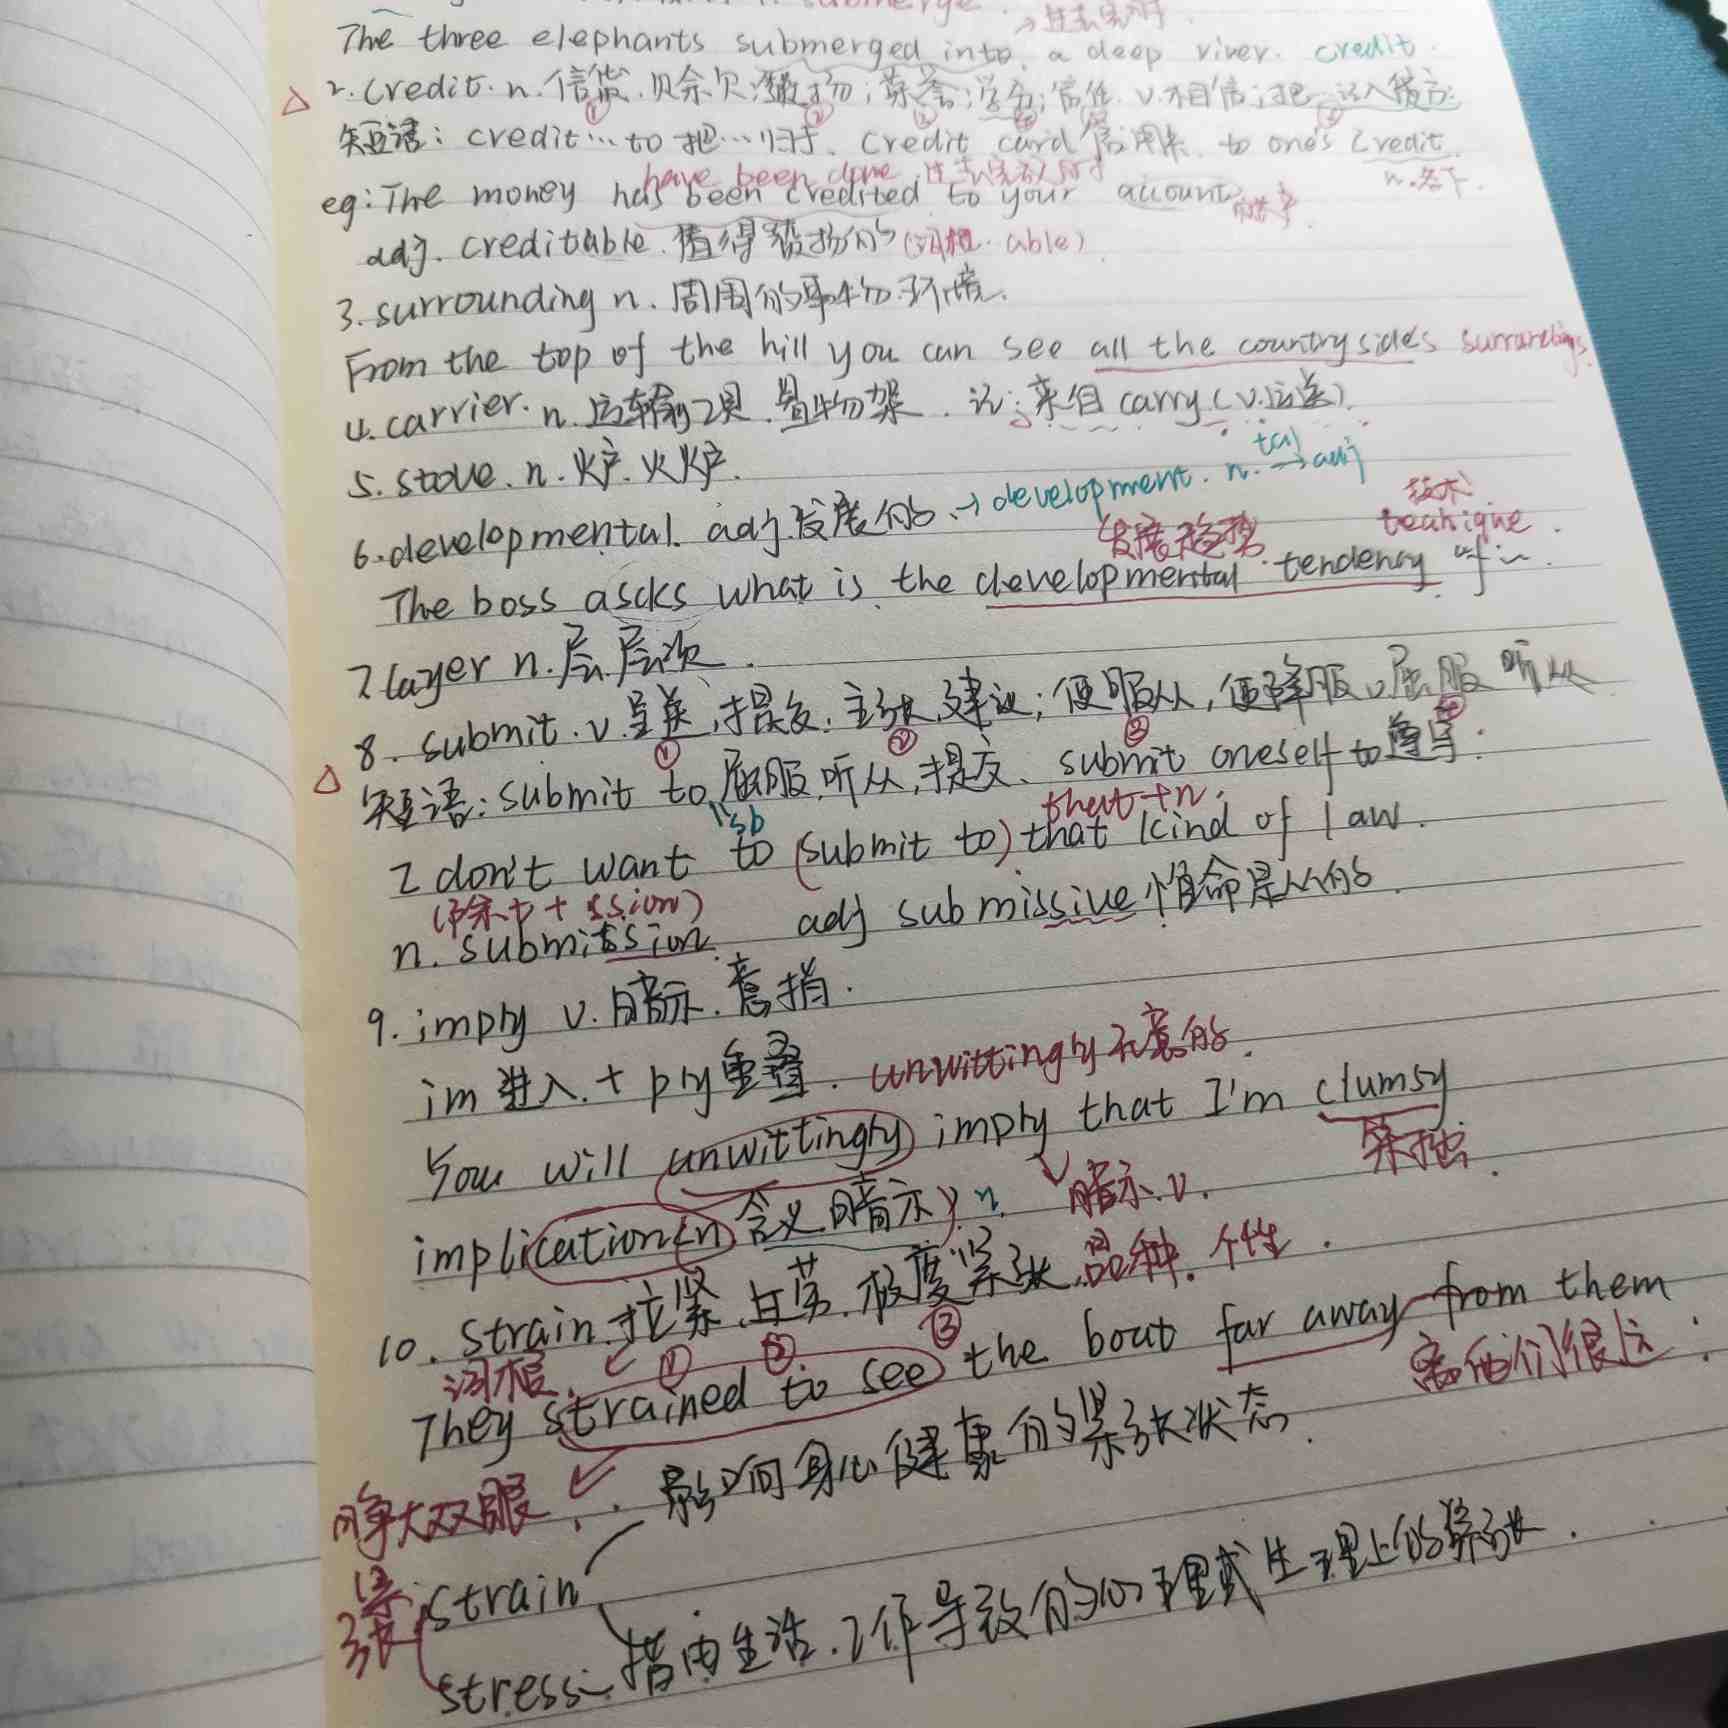 submerge.
The three elephants submerged into a deep river. credit.
2. credit. n. 信贷. 赊欠; 赞扬; 荣誉; 学分; 信任. v. 相信; 把 记入贷方
① ② ③ ④ ⑤
短语: credit…to 把…归于. credit card 信用卡. to one's credit
have been done
n. 名下.
eg: The money has been credited to your account
adj. creditable. 值得赞扬的 (词根. able)
3. surrounding n. 周围的事物. 环境.
From the top of the hill you can see all the countrysides surroundings
4. carrier. n. 运输工具. 置物架. 记: 来自 carry (v. 运送)
5. stove. n. 炉. 火炉.
6. developmental. adj. 发展的 → development. n. → adj
tal
发展趋势 技术 technique.
The boss ascks what is the developmental tendency of
7 layer n. 层. 层次.
8. submit. v. 呈送; 提交. 主张, 建议; 使服从, 使降服 v. 屈服 听从
① ② ③ ④
短语: submit to 屈服, 听从, 提交. submit oneself to 遵守.
sb that + n.
I don't want to (submit to) that kind of law.
(除t + ssion)
n. submission. adj submissive 惟命是从的.
9. imply v. 暗示. 意指.
im 进入. + ply 重叠. unwittingly 不意的.
You will unwittingly imply that I'm clumsy.
暗示. v. 笨拙.
implication (n 含义. 暗示) n.
10. strain. 拉紧. 过劳. 极度紧张. 品种. 个性.
词根. ① ② ③
They strained to see the boat far away from them
离他们很远.
睁大双眼. 影响身心健康的紧张状态.
紧张 strain
stress: 指由生活. 工作导致的心理或生理上的紧张.